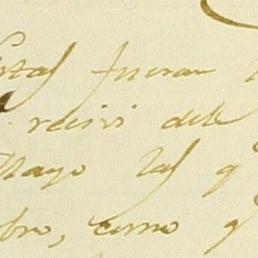 Estas fueran
recivi dele
Mayo las q
bro, como q